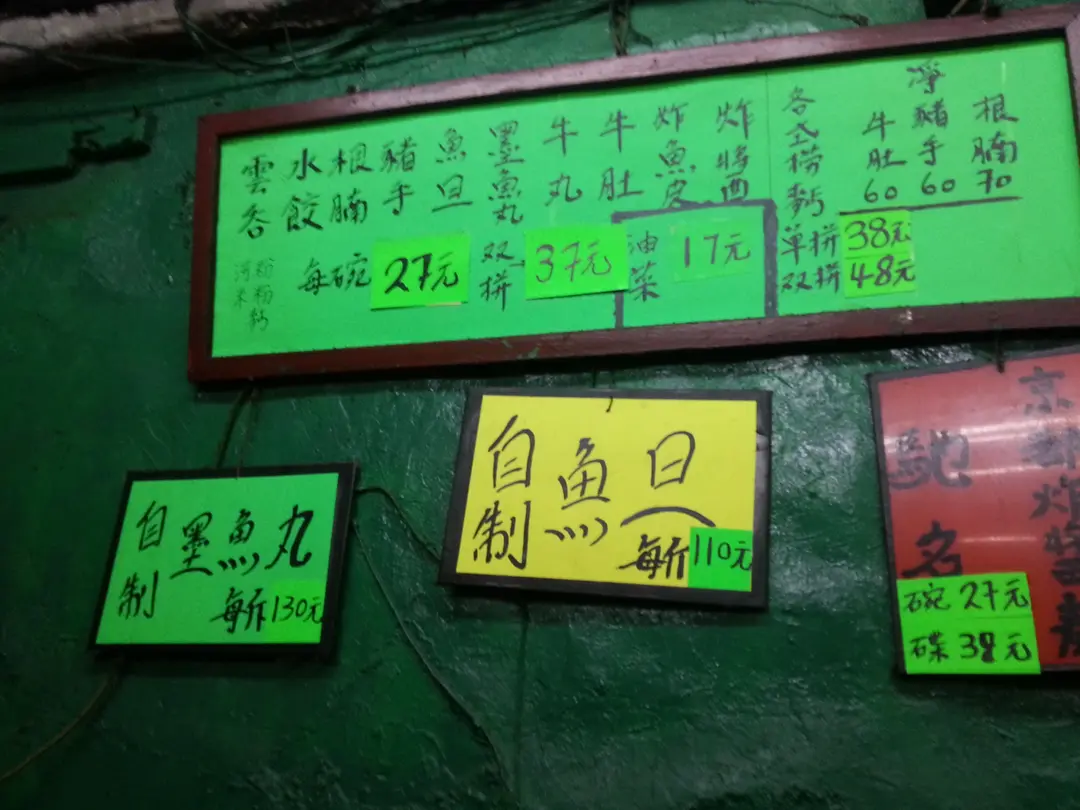 雲吞
水餃
根腩
豬手
魚旦
墨魚丸
牛丸
牛肚
炸魚皮
炸醬
河粉
米粉
每碗 27元
双拼 37元
油菜 17元
各式捞麪
单拼 38元
双拼 48元
淨
牛肚 60
豬手 60
根腩 70
自制
墨魚丸
每斤 130元
自制
魚旦
每斤 110元
馳名
京都炸醬
碗 27元
碟 38元